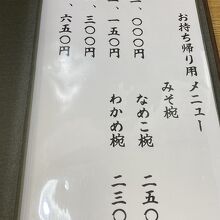 お持ち帰り用メニュー
みそ椀
、〇〇〇円 なめこ椀 二五〇
、一五〇円 わかめ椀 二三〇
、三〇〇円
、六五〇円